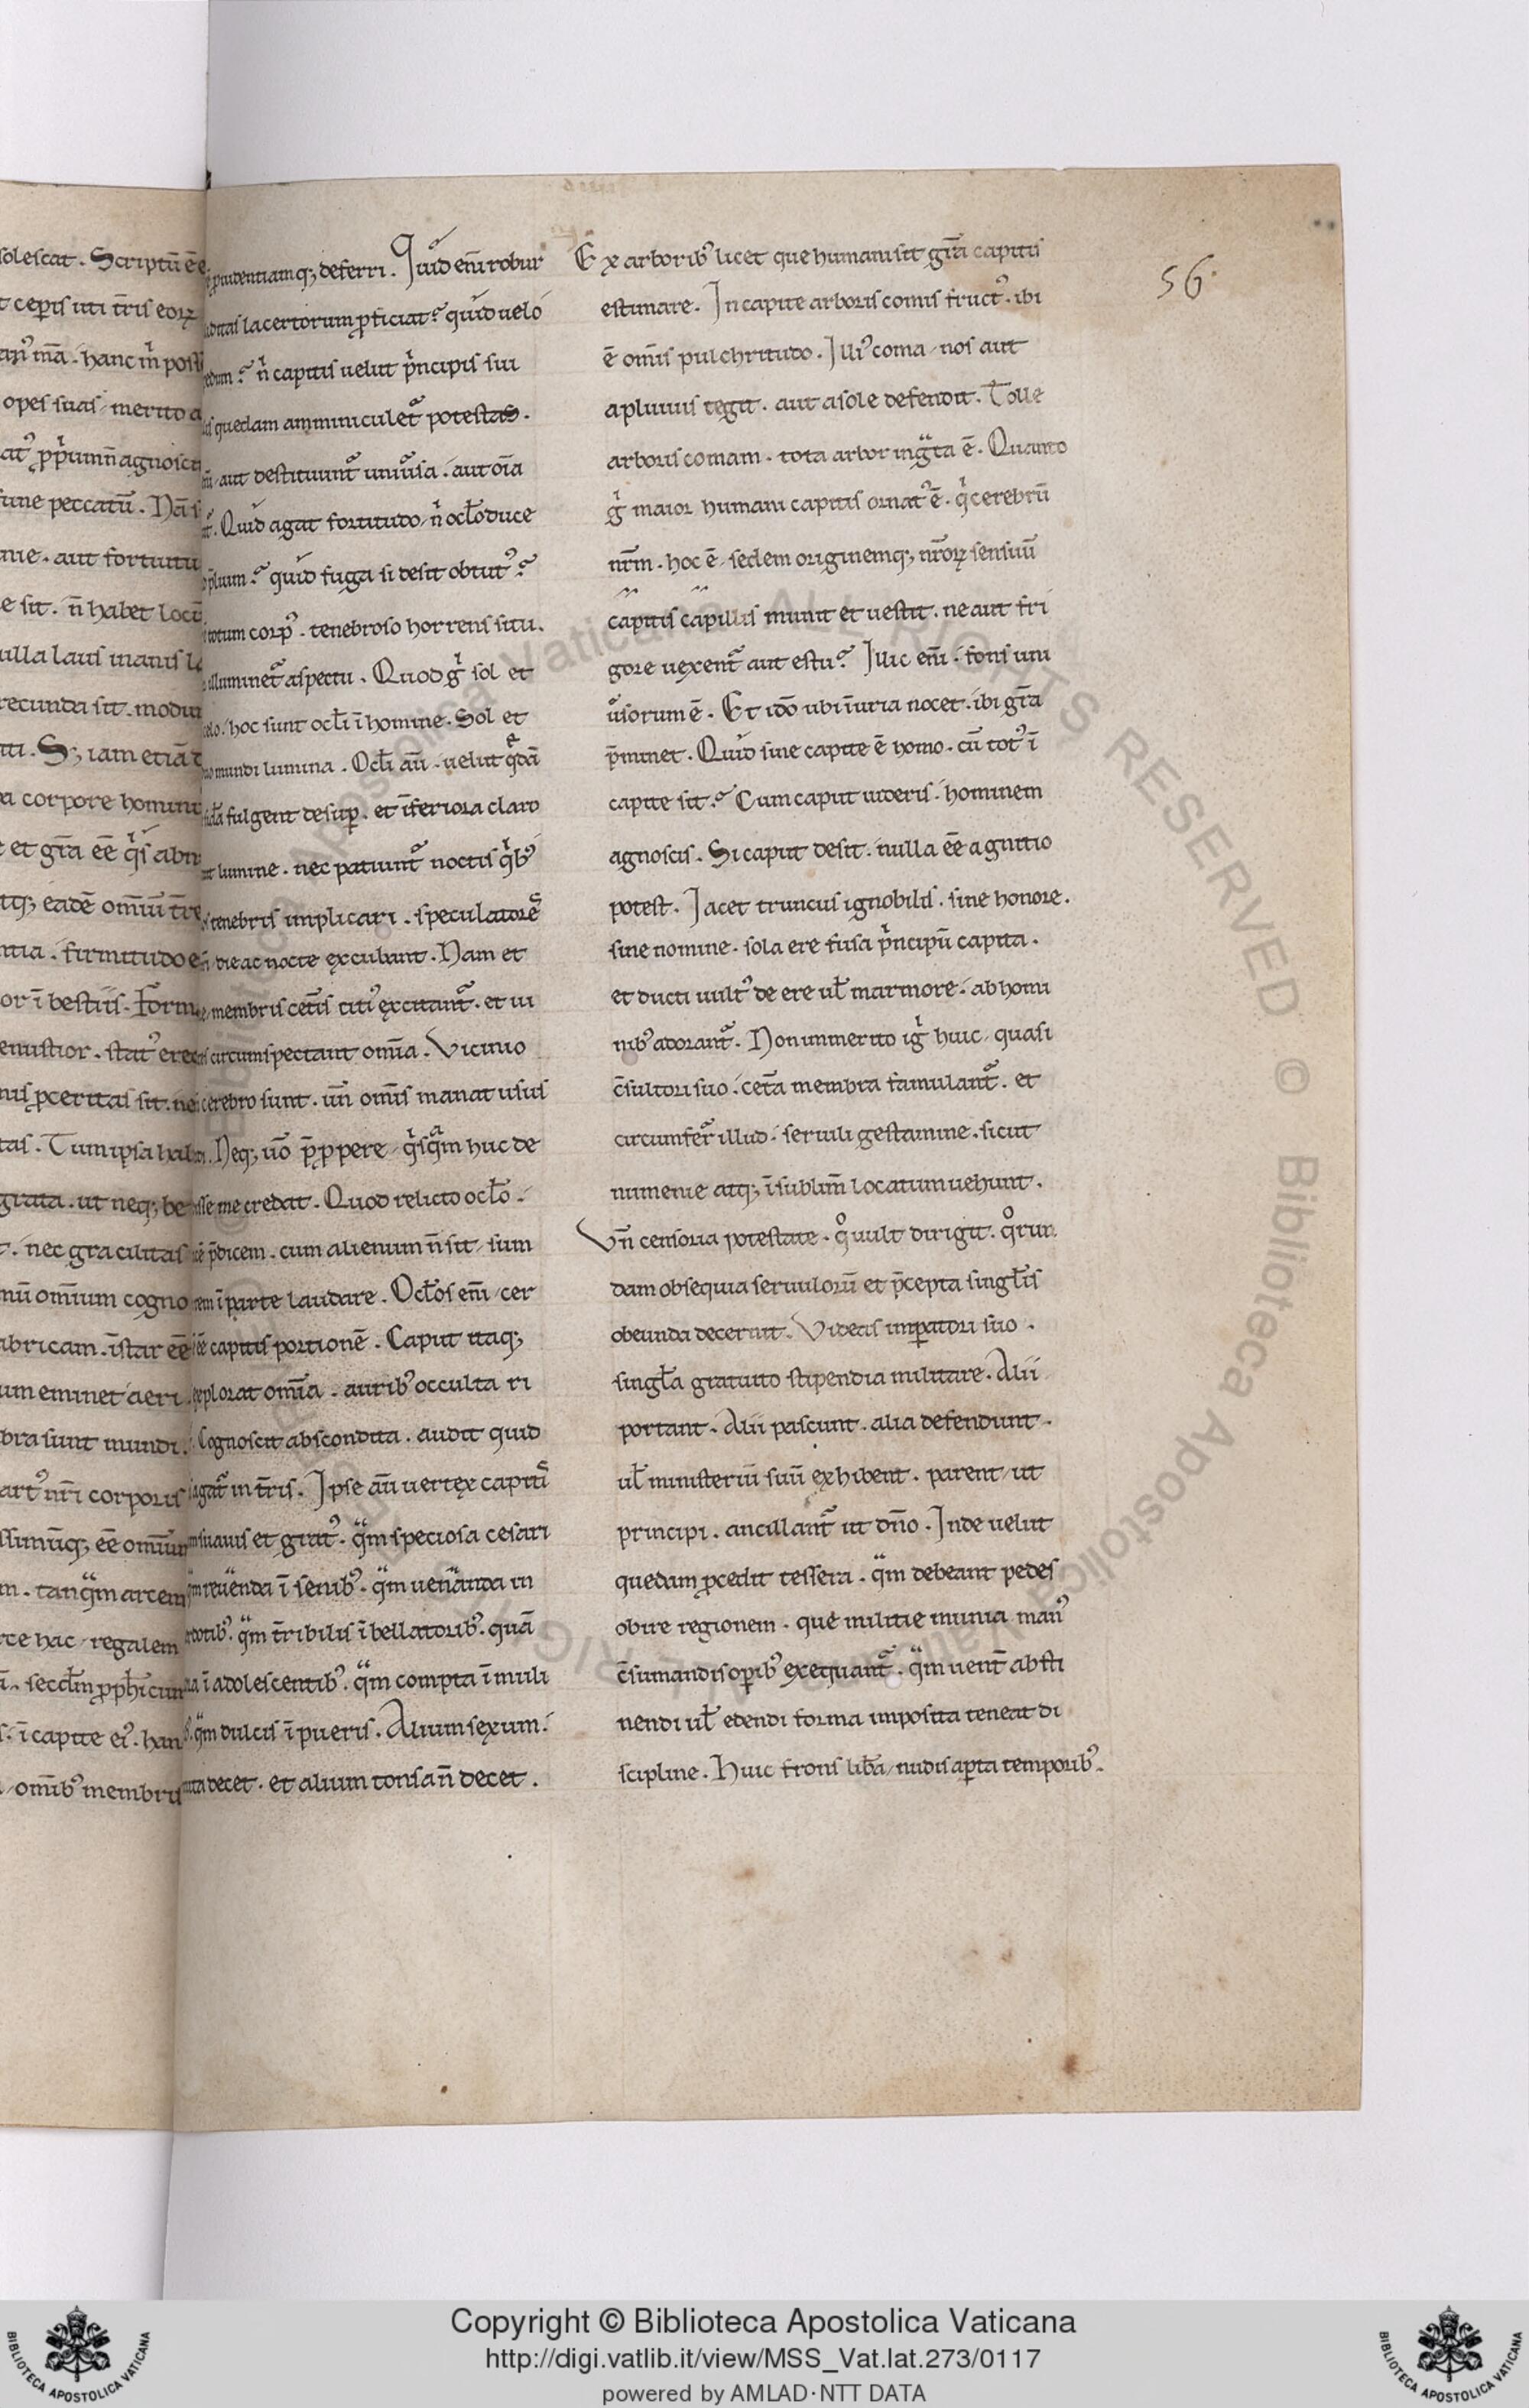 solescat . Scriptū ē
t ceꝑis uti t̄ris eoꝝ
opes suas / merito
fune peccatū . Nā
nie . aut fortuitu
e sit . n̄ habet locū
ulla laus inanis
recunda sit . modui
ti . Sꝫ iam etiā
a corpore homini
et gr̄a eē qͥs
tqꝫ eadē om̄iū
ntia . firmitudo
or ī bestiis . Form
enustior . statꝰ
nis ꝓceritas sit .
tas . Tum ipsa
grata . ut neqꝫ
. nec gracilitas
mū om̄ium cogno
abricam . īstar eē
um eminet aeri .
bra sunt mundi .
artꝰ nr̄i corporis
ssimūqꝫ eē om̄ium
m . tanqͣm arcem
ce hac / regalem
ī . sec̄dm ꝓph̄icum
. ī capite eiꝰ . han
/ om̄ibꝰ membris
prudentiamqꝫ deferri . Quid eni robur
lacertorum ꝓficiat ? quid uelo
n̄ capitis uelut pͥncipis sui
quedam amminiculet᷑ potestas .
aut destituunt᷑ uniu᷑sa . aut oīa
Quid agat fortitudo / n̄ ocl̄o duce
quid fuga si desit obtutꝰ ?
totum corpꝰ . tenebroso horrens situ .
illuminet᷑ aspectu . Quod gͥ sol et
hoc sunt ocl̄i ī homine . Sol et
mundi lumina . Ocl̄i aū . uelut qͣdā
fulgent desuꝑ . et īferiora claro
lumine . nec patiunt᷑ noctis qͥbꝰ
tenebris implicari . speculatorē
die ac nocte excubant . Nam et
membris cet᷑is citiꝰ excitant᷑ . et ui
circumspectant om̄ia . Vicino
cerebro sunt . un̄ om̄is manat usus
Neqꝫ uō p̄ꝓpere / qͥsqͣm huc de
me credat . Quod relicto ocl̄o .
p̄dicem . cum alienum n̄ sit / sum
ī parte laudare . Ocl̄os eni / cer
eē capitis portionē . Caput itaqꝫ
explorat om̄ia . auribꝰ occulta ri
Cognoscit abscondita . audit quid
agat᷑ in t̄ris . Ipse aū uertex capitis
suauis et gratꝰ . qͣm speciosa cesari
qͣm reu᷑enda ī senibꝰ . qͣm uen᷑anda in
qͣm t̄ribilis ī bellatoribꝰ . quā
ī adolescentibꝰ . qͣm compta ī muli
qͣm dulcis ī pueris . Alium sexum .
decet . et alium tonsa n̄ decet .
56
Ex arboribꝰ licet que humani sit gr̄a capitis
estimare . In capite arboris comis fructꝰ . ibi
ē om̄is pulchritudo . Illiꝰ coma / nos aut
a pluuiis tegit . aut a sole defendit . Tolle
arboris comam . tota arbor ingͣta ē . Quanto
gͥ maior humani capitis ornatꝰ ē . qͥ cerebrū
nr̄m . hoc ē / sedem originemqꝫ nr̄oꝝ sensuū
capitis capillis munit et uestit . ne aut fri
gore uexent᷑ aut estu ? Illic eni . fons uni
u᷑sorum ē . Et idō ubi īuria nocet . ibi gr̄a
p̄minet . Quid sine capite ē homo . cū totꝰ ī
capite sit ? Cum caput uideris . hominem
agnoscis . Si caput desit . nulla eē agnitio
potest . Iacet truncus ignobilis . sine honore .
sine nomine . sola ere fusa pͥncipū capita .
et ducti uultꝰ de ere ul̄ marmore . ab homi
nibꝰ adorant᷑ . Non immerito igͥ huic / quasi
c̄sultori suo . cet᷑a membra famulant᷑ . et
circumfer᷑ illud . seruili gestamine . sicut
numenie atqꝫ ī sublim̄ locatum uehunt .
Vn̄ censoria potestate . qͦ uult dirigit . qͦrun
dam obsequia seruulorū et p̄cepta singl̄is
obeunda decernit . Videas imꝑatori suo .
singl̄a gratuito stipendia militare . Alii
portant . Alii pascunt . alia defendunt .
ul̄ ministeriū suū exhibent . parent / ut
principi . ancillant᷑ ut dn̄o . Inde uelut
quedam ꝓcedit tessera . qͣm debeant pedes
obire regionem . que militie munia manꝰ
c̄sumandis oꝑibꝰ exequant᷑ . qͣm uent̄ absti
nendi ul̄ edendi forma imposita teneat di
scipline . Huic frons lib᷑a / nudis aꝑta temporibꝰ .
Copyright © Biblioteca Apostolica Vaticana
http://digi.vatlib.it/view/MSS_Vat.lat.273/0117
powered by AMLAD·NTT DATA